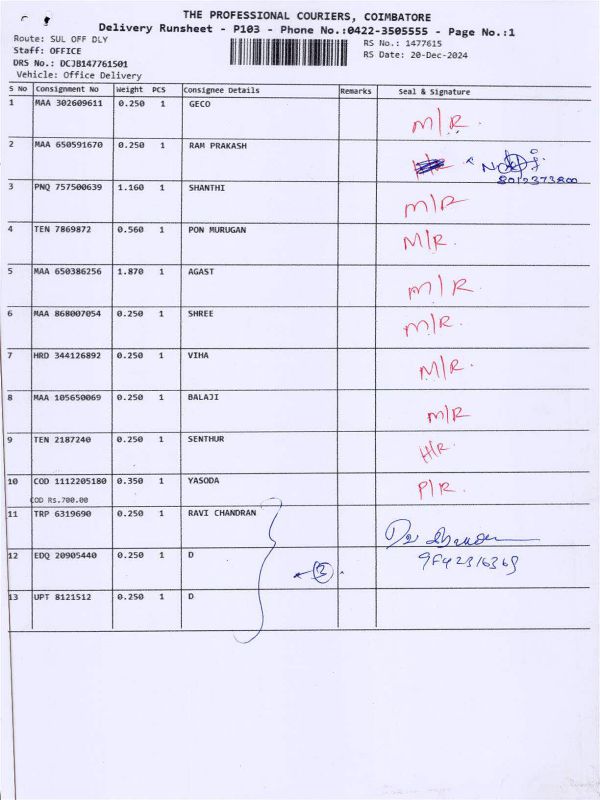 THE PROFESSIONAL COURIERS, COIMBATORE
Delivery Runsheet - P103 - Phone No.:0422-3505555 - Page No.:1
Route: SUL OFF DLY
RS No.: 1477615
Staff: OFFICE
RS Date: 20-Dec-2024
DRS No.: DCJB147761501
Vehicle: Office Delivery
S No Consignment No Weight PCS Consignee Details Remarks Seal & Signature
1 MAA 302609611 0.250 1 GECO M/R.
2 MAA 650591670 0.250 1 RAM PRAKASH
8012373800
3 PNQ 757500639 1.160 1 SHANTHI M/R
4 TEN 7869872 0.560 1 PON MURUGAN M/R.
5 MAA 650386256 1.870 1 AGAST M/R.
6 MAA 868007054 0.250 1 SHREE M/R.
7 HRD 344126892 0.250 1 VIHA M/R.
8 MAA 105650069 0.250 1 BALAJI M/R
9 TEN 2187240 0.250 1 SENTHUR H/R.
10 COD 1112205180 0.350 1 YASODA P/R.
COD Rs.700.00
11 TRP 6319690 0.250 1 RAVI CHANDRAN
12 EDQ 20905440 0.250 1 D 3
13 UPT 8121512 0.250 1 D